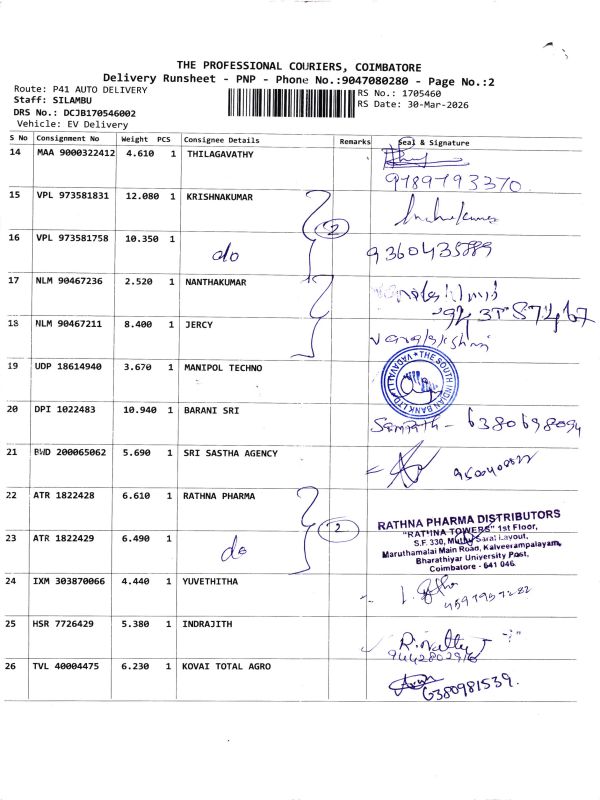 THE PROFESSIONAL COURIERS, COIMBATORE
Delivery Runsheet - PNP - Phone No.:9047080280 - Page No.:2
Route: P41 AUTO DELIVERY
RS No.: 1705460
Staff: SILAMBU
RS Date: 30-Mar-2026
DRS No.: DCJB170546002
Vehicle: EV Delivery
S No Consignment No Weight PCS Consignee Details Remarks Seal & Signature
14 MAA 9000322412 4.610 1 THILAGAVATHY
9789793370
15 VPL 973581831 12.080 1 KRISHNAKUMAR
2
16 VPL 973581758 10.350 1 do
9360435889
17 NLM 90467236 2.520 1 NANTHAKUMAR
18 NLM 90467211 8.400 1 JERCY
19 UDP 18614940 3.670 1 MANIPOL TECHNO
THE SOUTH INDIAN BANK LTD. VADAVALLI
20 DPI 1022483 10.940 1 BARANI SRI
Sampath - 6380698094
21 BWD 200065062 5.690 1 SRI SASTHA AGENCY
22 ATR 1822428 6.610 1 RATHNA PHARMA
2
RATHNA PHARMA DISTRIBUTORS
"RATHNA TOWERS" 1st Floor,
S.F. 330, Muthu Sarai Layout,
Maruthamalai Main Road, Kalveerampalayam,
Bharathiyar University Post,
Coimbatore - 641 046.
23 ATR 1822429 6.490 1 do
24 IXM 303870066 4.440 1 YUVETHITHA
25 HSR 7726429 5.380 1 INDRAJITH
26 TVL 40004475 6.230 1 KOVAI TOTAL AGRO
6380981539.